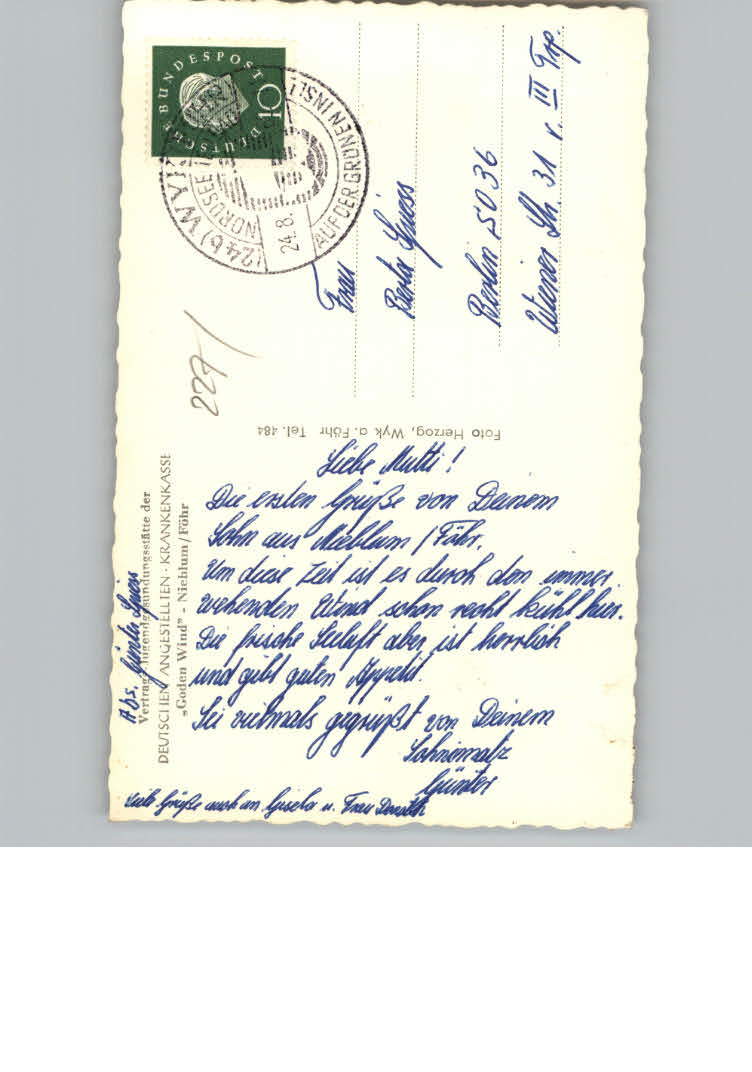 DEUTSCHE BUNDESPOST
10
(24b) WYK
NORDSEE
24.8.
AUF DER GRÜNEN INSEL
Frau
Berta Spiess
Berlin SO 36
Wiener Str. 31 v. III Trp.
227
Foto Herzog, Wyk a. Föhr Tel. 484
Abs. Günter Spiess
Vertrags-Jugendgesundungsstätte der
DEUTSCHEN ANGESTELLTEN-KRANKENKASSE
„Goden Wind" - Nieblum/Föhr
Liebe Mutti!
Die ersten Grüße von Deinem
Sohn aus Nieblum/Föhr.
Um diese Zeit ist es durch den immer
wehenden Wind schon recht kühl hier.
Die frische Seeluft aber ist herrlich
und gibt guten Appetit.
Sei vielmals gegrüßt von Deinem
Sohnematz
Günter
Viele Grüße auch an Gisela u. Frau